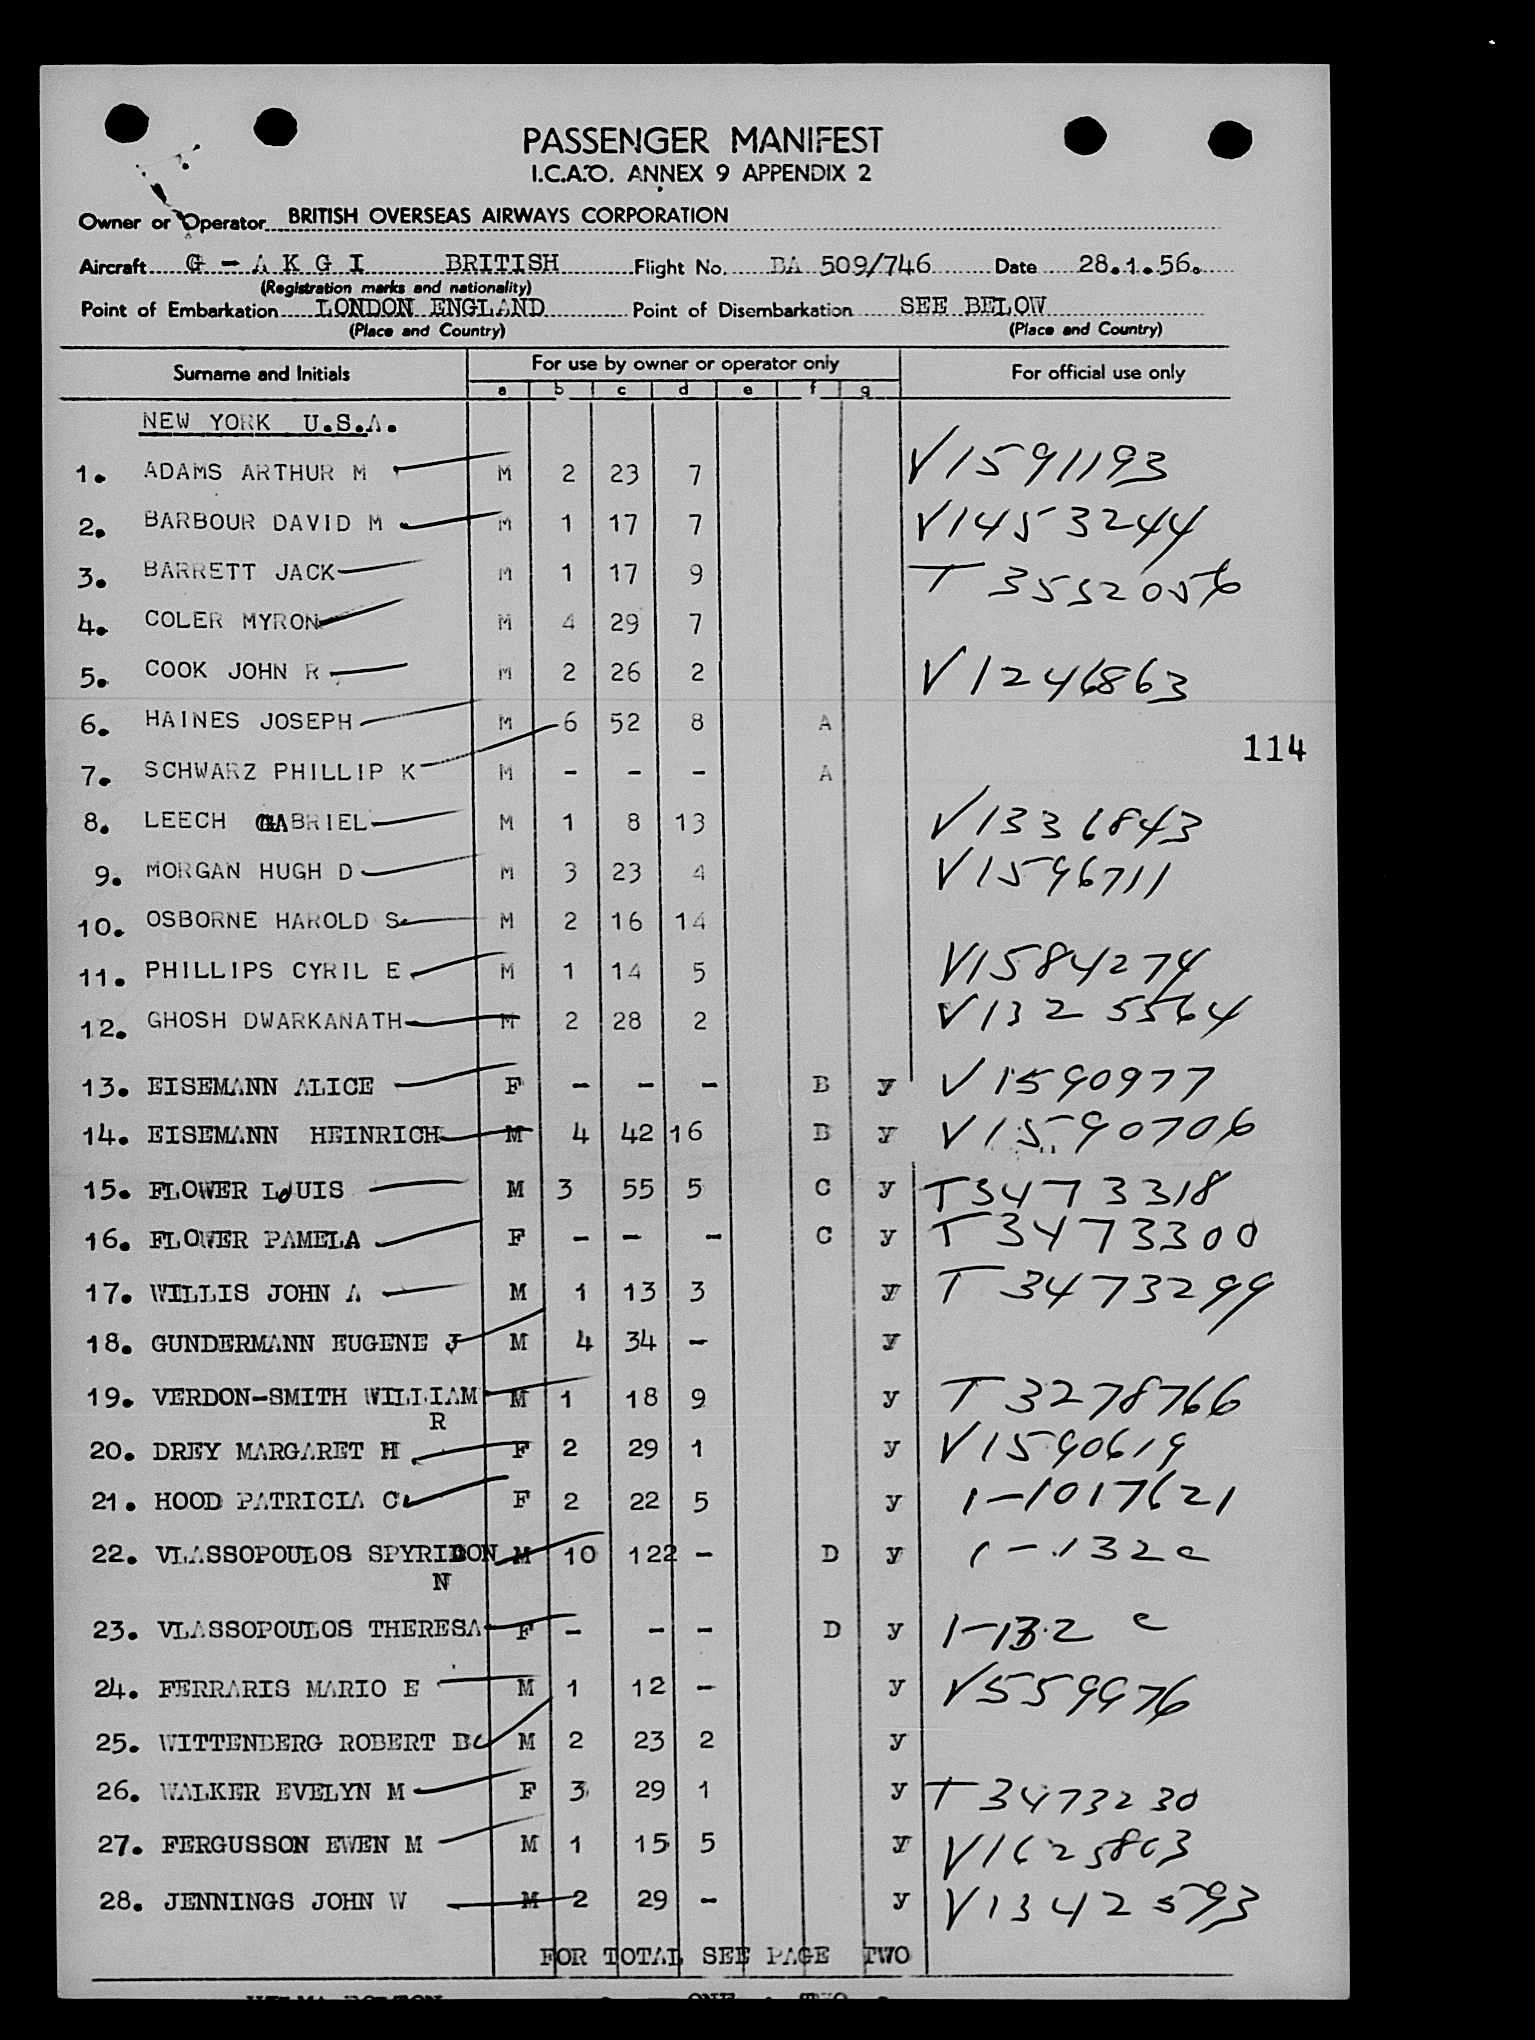 PASSENGER MANIFEST
I.C.A.O. ANNEX 9 APPENDIX 2
Owner or Operator BRITISH OVERSEAS AIRWAYS CORPORATION
Aircraft G - A K G I BRITISH Flight No. BA 509/746 Date 28.1.56.
(Registration marks and nationality)
Point of Embarkation LONDON ENGLAND Point of Disembarkation SEE BELOW
(Place and Country) (Place and Country)
Surname and Initials For use by owner or operator only For official use only
a b c d e f g
NEW YORK U.S.A.
1. ADAMS ARTHUR M M 2 23 7 V1591193
2. BARBOUR DAVID M M 1 17 7 V1453244
3. BARRETT JACK M 1 17 9 T 3552056
4. COLER MYRON M 4 29 7
5. COOK JOHN R M 2 26 2 V1246863
6. HAINES JOSEPH M 6 52 8 A
114
7. SCHWARZ PHILLIP K M - - - A
8. LEECH GABRIEL M 1 8 13 V1336843
9. MORGAN HUGH D M 3 23 4 V1596711
10. OSBORNE HAROLD S M 2 16 14
11. PHILLIPS CYRIL E M 1 14 5 V1584274
12. GHOSH DWARKANATH M 2 28 2 V1325564
13. EISEMANN ALICE F - - - B y V1590977
14. EISEMANN HEINRICH M 4 42 16 B y V1590706
15. FLOWER LOUIS M 3 55 5 C y T3473318
16. FLOWER PAMELA F - - - C y T3473300
17. WILLIS JOHN A M 1 13 3 y T3473299
18. GUNDERMANN EUGENE J M 4 34 - y
19. VERDON-SMITH WILLIAM M 1 18 9 y T3278766
R
20. DREY MARGARET H F 2 29 1 y V1590619
21. HOOD PATRICIA C F 2 22 5 y 1-1017621
22. VLASSOPOULOS SPYRIDON M 10 122 - D y 1-132c
N
23. VLASSOPOULOS THERESA F - - - D y 1-132 c
24. FERRARIS MARIO E M 1 12 - y V559976
25. WITTENBERG ROBERT B M 2 23 2 y
26. WALKER EVELYN M F 3 29 1 y T3473230
27. FERGUSSON EWEN M M 1 15 5 y V1625863
28. JENNINGS JOHN W M 2 29 - y V1342593
FOR TOTAL SEE PAGE TWO